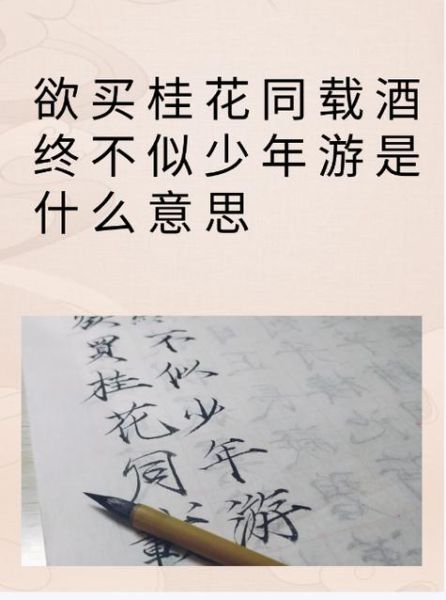 欲买桂花同载酒
终不似少年游是
什么意思
買桂花同載
不似少年游